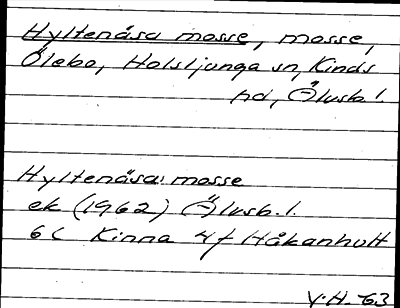 Hyltenäsa mosse, mosse,
Ölebo, Holsljunga sn, Kinds
hd, Älvsb. l.
Hyltenäsa: mosse
ek (1962) Älvsb. l.
6C Kinna 4f Håkanhult
V. H. -63